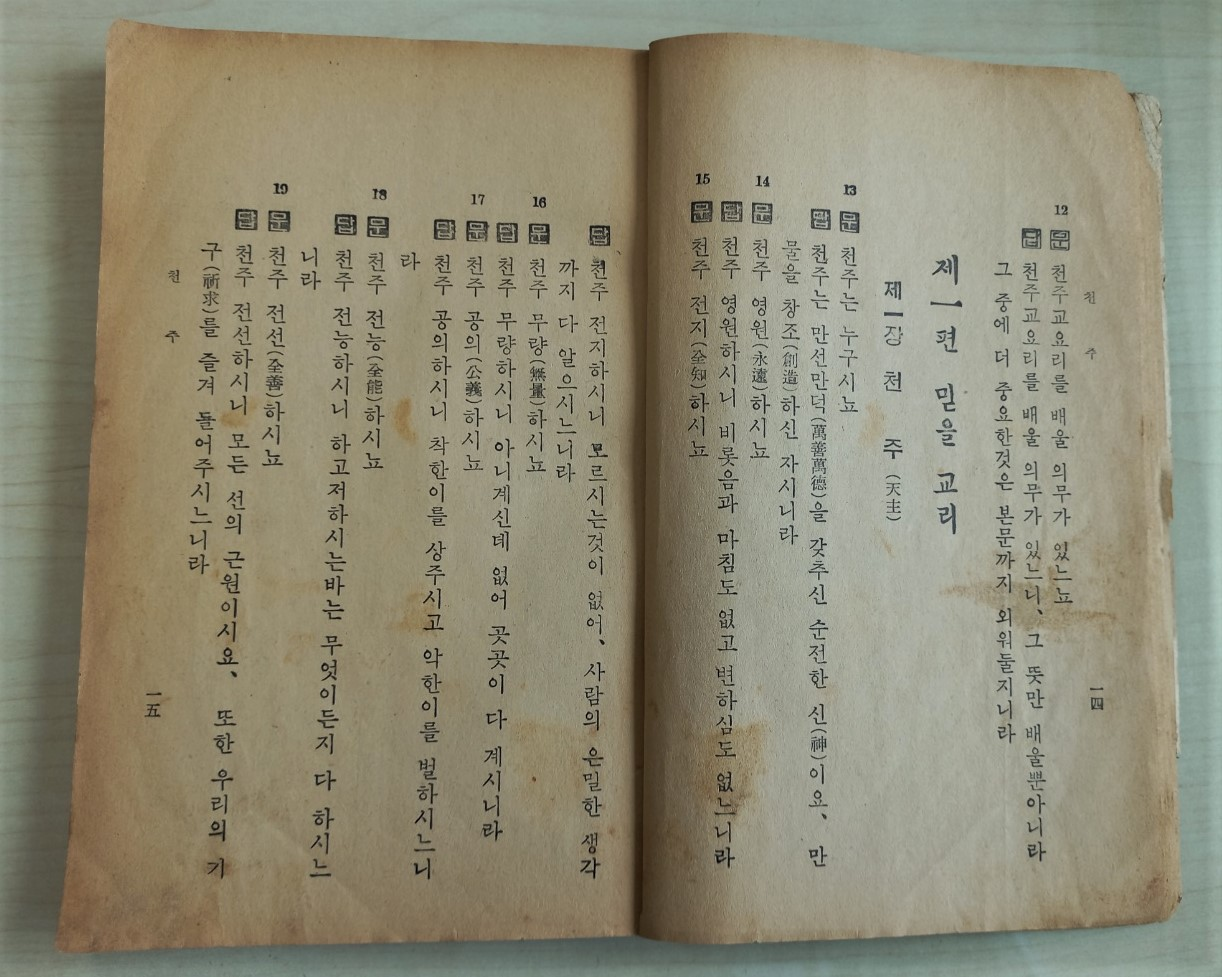 천 주
12
문 천주교요리를 배울 의무가 있느뇨
답 천주교요리를 배울 의무가 있느니、그 뜻만 배울뿐아니라
그 중에 더 중요한것은 본문까지 외워둘지니라
제一편 믿을 교리
제一장 천 주 (天主)
13
문 천주는 누구시뇨
답 천주는 만선만덕(萬善萬德)을 갖추신 순전한 신(神)이요、만
물을 창조(創造)하신 자시니라
14
문 천주 영원(永遠)하시뇨
답 천주 영원하시니 비롯음과 마침도 없고 변하심도 없느니라
15
문 천주 전지(全知)하시뇨
一四
답 천주 전지하시니 모르시는것이 없어、사람의 은밀한 생각
까지 다 알으시느니라
16
문 천주 무량(無量)하시뇨
답 천주 무량하시니 아니계신데 없어 곳곳이 다 계시니라
17
문 천주 공의(公義)하시뇨
답 천주 공의하시니 착한이를 상주시고 악한이를 벌하시느니
라
18
문 천주 전능(全能)하시뇨
답 천주 전능하시니 하고저하시는바는 무엇이든지 다 하시느
니라
19
문 천주 전선(全善)하시뇨
답 천주 전선하시니 모든 선의 근원이시요、또한 우리의 기
구(祈求)를 즐겨 들어주시느니라
천 주
一五